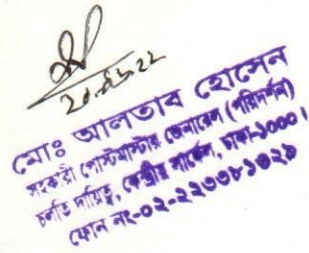 মোঃ আলতাব হোসেন
সহকারী পোস্টমাস্টার জেনারেল (পরিদর্শন)
চলতি দায়িত্ব, কেন্দ্রীয় সার্কেল, ঢাকা-১০০০।
ফোন নং-০২-২২৩৩৮১৩২৯